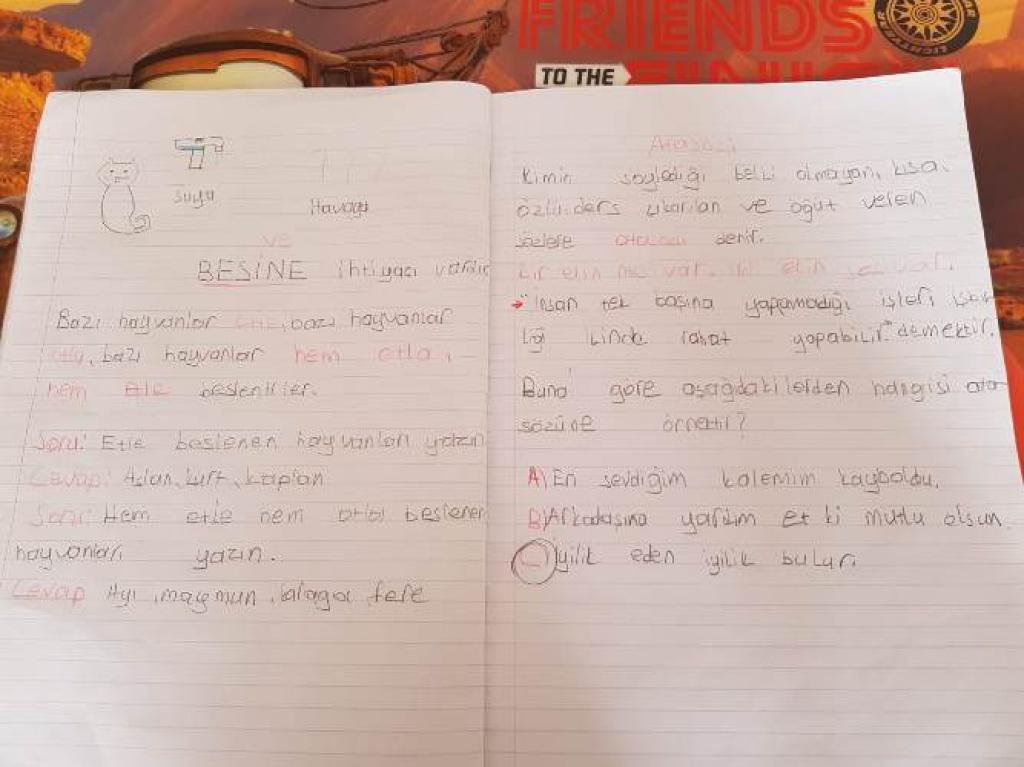 FRIENDS
TO THE
LIGHTYEAR
suya
Havaya
ve
BESİNE ihtiyacı vardır
Bazı hayvanlar etle, bazı hayvanlar
otla, bazı hayvanlar hem otla,
hem etle beslenirler.
Soru: Etle beslenen hayvanları yazın
Cevap: Aslan, kurt, kaplan
Soru: Hem etle hem otla beslenen
hayvanları yazın.
Cevap Ayı, maymun, karga, fare
Atasözü
Kimin söylediği belli olmayan, kısa,
özlü, ders çıkarılan ve öğüt veren
sözlere atasözü denir.
Bir elin nesi var, iki elin sesi var.
→ "İnsan tek başına yapamadığı işleri işbir
liği içinde rahat yapabilir" demektir.
Buna göre aşağdakilerden hangisi ata
sözüne örnektir?
A) En sevdiğim kalemim kayboldu.
B) Arkadaşına yardım et ki mutlu olsun.
C) İyilik eden iyilik bulur.